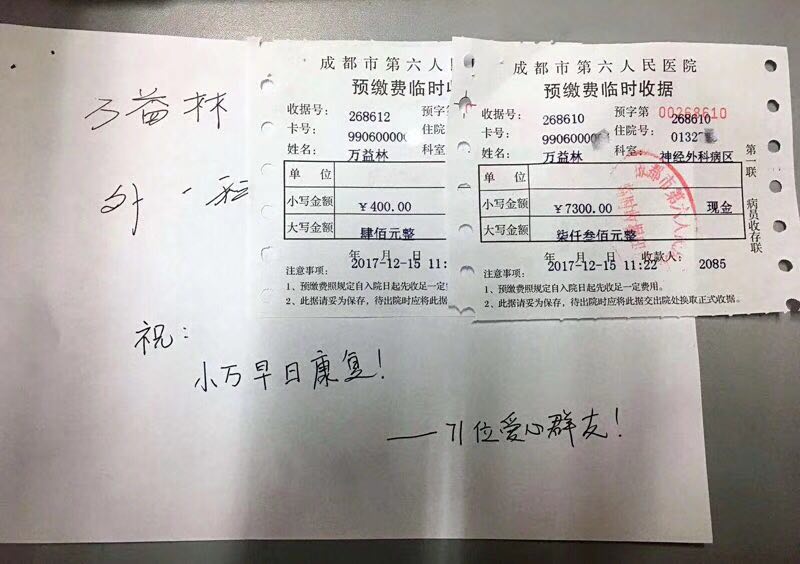 万益林
外一科
祝：
小万早日康复！
——71位爱心群友！
成都市第六人
预缴费临时收
收据号： 268612 预字第
卡号： 990600000 住院号
姓名： 万益林 科室：
单 位
小写金额 ￥400.00
大写金额 肆佰元整
年 月 日
2017-12-15 11:
注意事项：
1、预缴费照规定自入院日起先收足一定
2、此据请妥为保存，待出院时应将此据
成都市第六人民医院
预缴费临时收据
收据号： 268610 预字第 268610 00268610
卡号： 990600000 住院号： 0132
姓名： 万益林 科室： 神经外科病区
单 位
小写金额 ￥7300.00 现金
大写金额 柒仟叁佰元整
年 月 日 收款人： 2085
2017-12-15 11:22
注意事项：
1、预缴费照规定自入院日起先收足一定费用。
2、此据请妥为保存，待出院时应将此据交出院处换取正式收据。
第一联 病员收存联
成都市第六人民